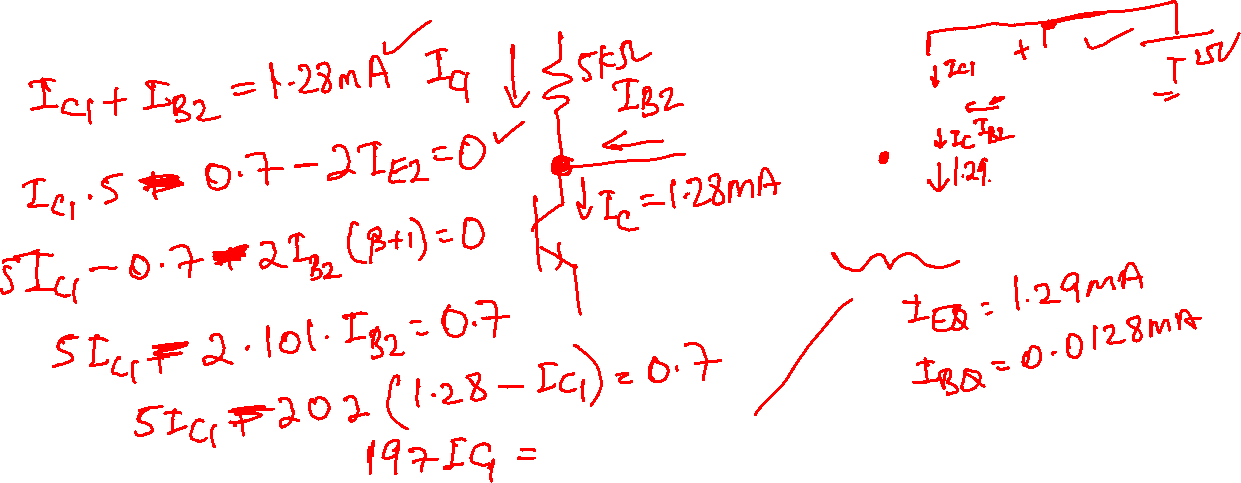 I_{C1} + I_{B2} = 1.28mA ✓
I_{C1}.5 - 0.7 - 2I_{E2} = 0 ✓
5I_{C1} - 0.7 - 2I_{B2}(β+1) = 0
5I_{C1} - 2.101.I_{B2} = 0.7
5I_{C1} - 202(1.28 - I_{C1}) = 0.7
197I_{C1} =
I_{C1} ↓
5kΩ
I_{B2}
←
↓ I_C = 1.28mA
+
✓
15V
↓ I_{C1}
I_{B2}
↓ I_C
↓ 1.29
I_{EQ} = 1.29mA
I_{BQ} = 0.0128mA